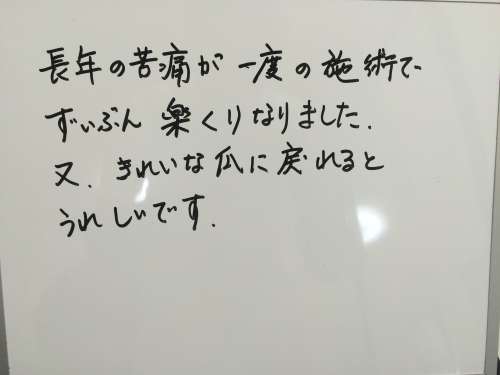 長年の苦痛が一度の施術で
ずいぶん楽くりなりました.
又.きれいな爪に戻れると
うれしいです.